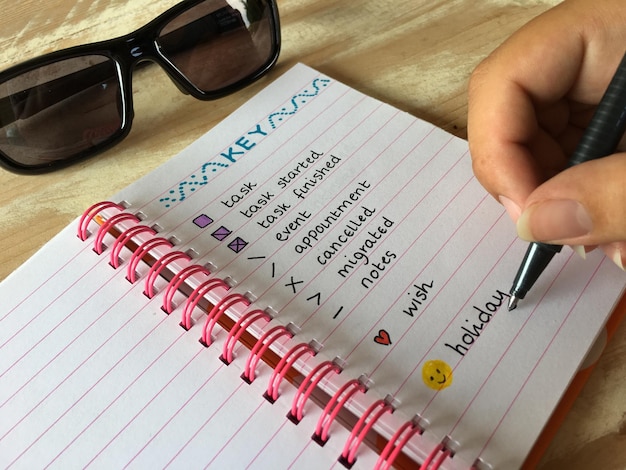 KEY
task
task started
task finished
event
appointment
cancelled
migrated
notes
wish
holiday